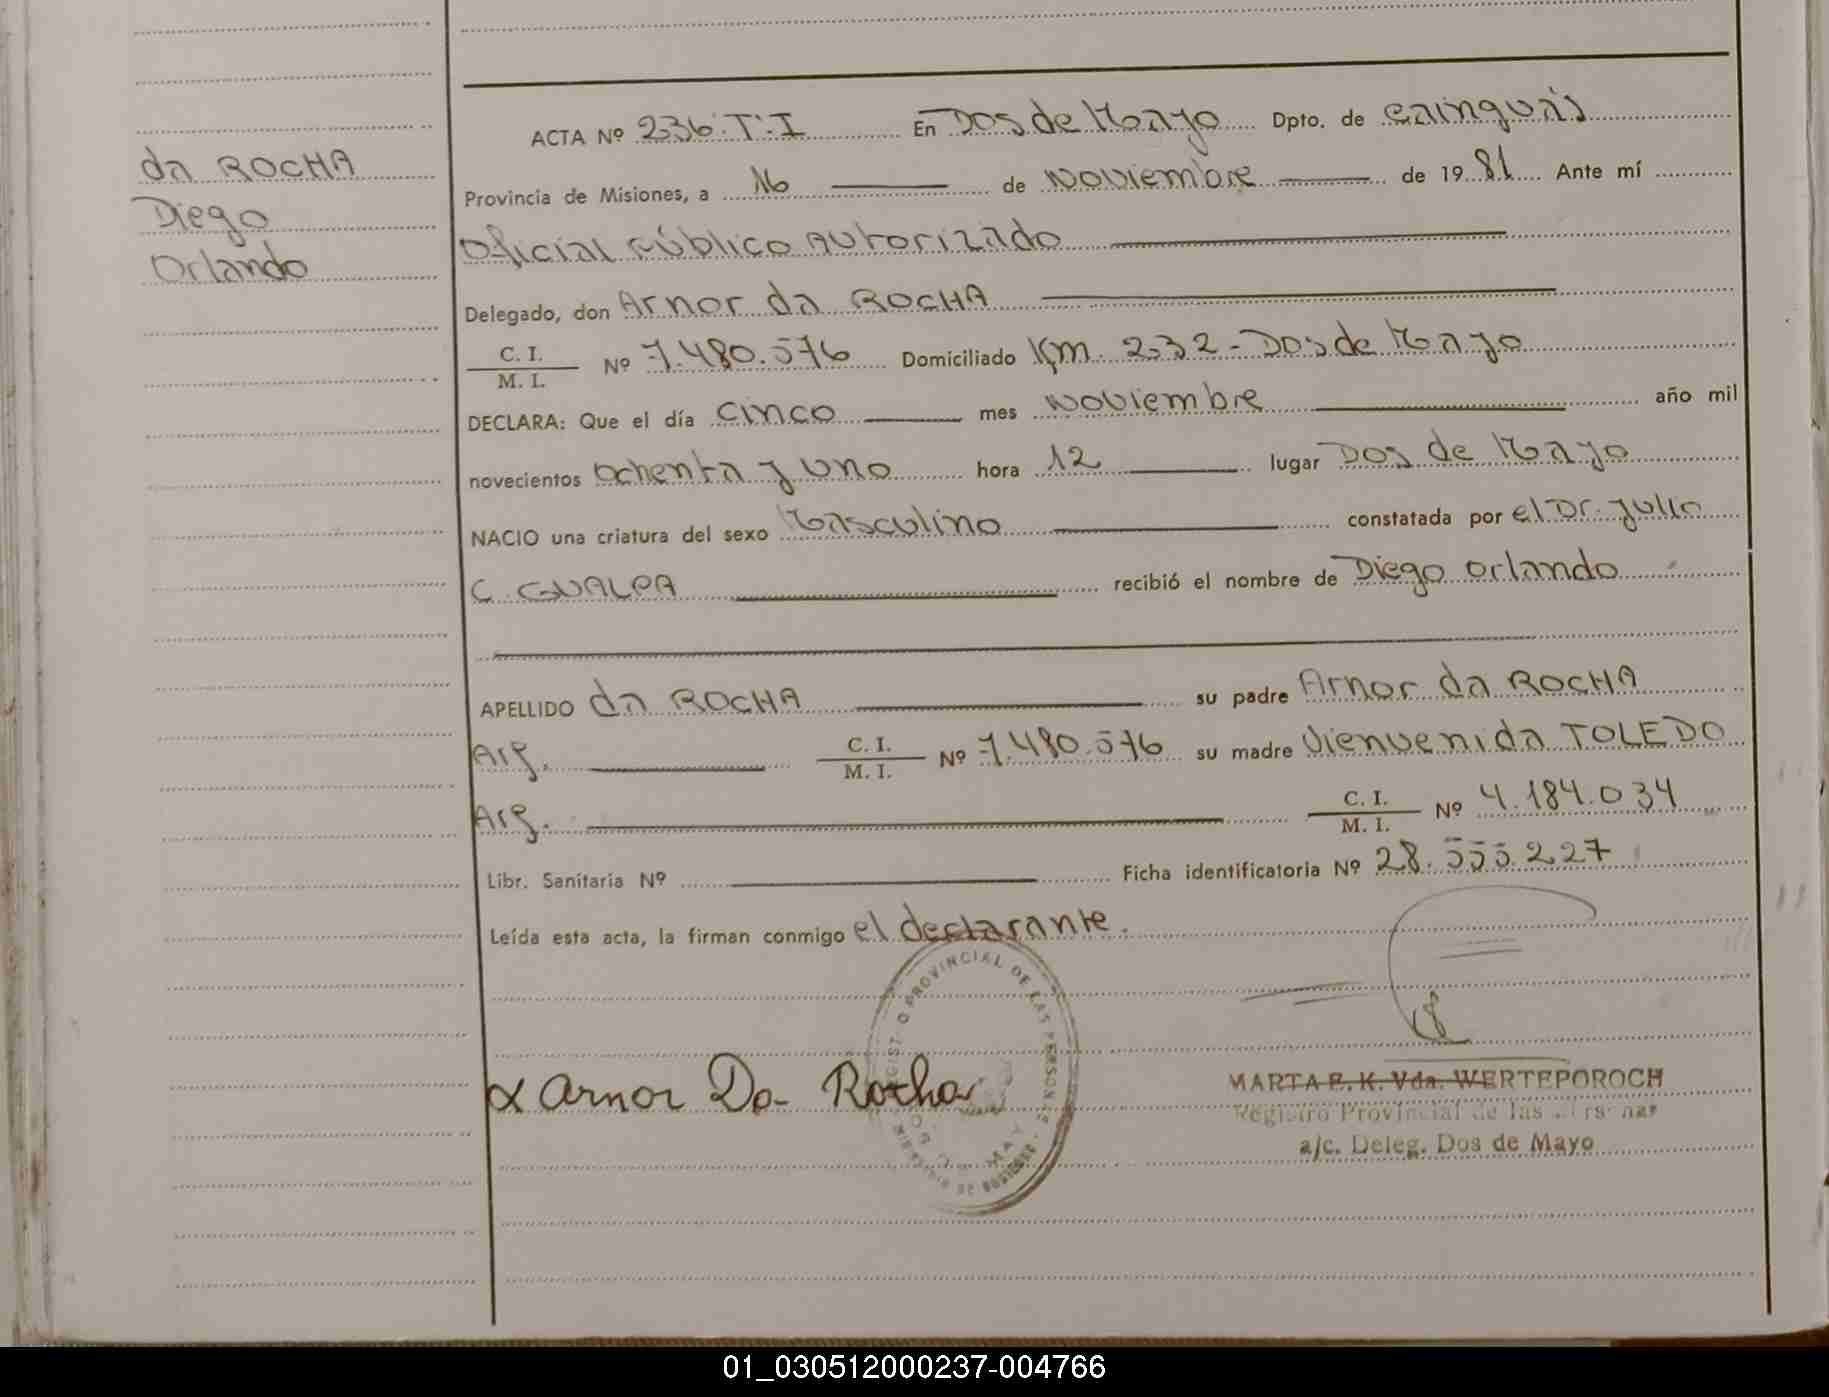 da ROCHA
Diego
Orlando
ACTA Nº 236 T. I En Dos de Mayo Dpto. de Cainguás
Provincia de Misiones, a 16 de Noviembre de 1981 Ante mí
Oficial Público Autorizado
Delegado, don Arnor da ROCHA
C. I.
M. I. Nº 7.480.576 Domiciliado Km. 232 - Dos de Mayo
DECLARA: Que el día cinco mes Noviembre año mil
novecientos ochenta y uno hora 12 lugar Dos de Mayo
NACIO una criatura del sexo Masculino constatada por el Dr. Julio
C. GUALPA recibió el nombre de Diego Orlando
APELLIDO da ROCHA su padre Arnor da ROCHA
Arg. C. I.
M. I. Nº 7.480.576 su madre Vienvenida TOLEDO
Arg. C. I.
M. I. Nº 4.184.034
Libr. Sanitaria Nº Ficha identificatoria Nº 28.555.227
Leída esta acta, la firman conmigo el declarante.
PROVINCIAL DE LAS PERSONAS
x Arnor Da Rocha
MARTA E. K. Vda. WERTEPOROCH
Registro Provincial de las
a/c. Deleg. Dos de Mayo
01_030512000237-004766